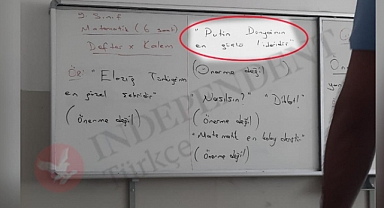 9. Sınıf
Matematik (6. saat)
Defter x Kalem
ÖR: " Elazığ Türkiyenin
en güzel şehridir"
(Önerme değil)
" Putin Dünyanın
en güçlü lideridir"
(Önerme değil)
"Nasılsın?" "Dikkat!"
(Önerme değil)
"Matematik en kolay derstir"
(Önerme değil)
INDEPENDENT
Türkçe